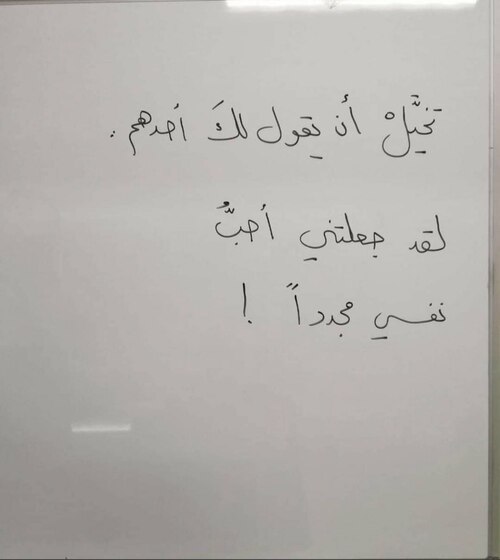 تخيَّلْ أن يقول لكَ أحدهم :
لقد جعلتني أحبُّ
نفسي مجدداً !